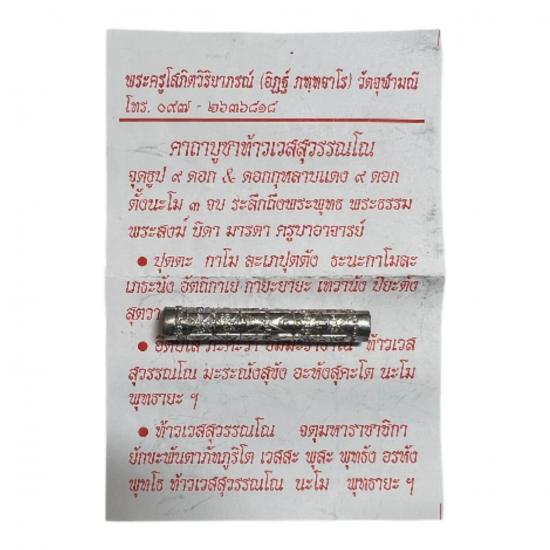 พระครูโสภิตวิริยาภรณ์ (อิฏฐ์ ภทฺทจาโร) วัดจุฬามณี
โทร. ๐๙๗ - ๒๖๓๖๘๑๘
คาถาบูชาท้าวเวสสุวรรณโณ
จุดธูป ๙ ดอก & ดอกกุหลาบแดง ๙ ดอก
ตั้งนะโม ๓ จบ ระลึกถึงพระพุทธ พระธรรม
พระสงฆ์ บิดา มารดา ครูบาอาจารย์
● ปุตตะ กาโม ละเภปุตตัง ธะนะกาโมละ
เภธะนัง อัตถิกาเย กายะยายะ เทวานัง ปิยะตัง
สุตวา
● ท้าวเวส
สุวรรณโณ มะระณังสุขัง อะหังสุคะโต นะโม
พุทธายะ ฯ
● ท้าวเวสสุวรรณโณ จตุมหาราชาชิกา
ยักขะพันตาภัทภูริโต เวสสะ พุสะ พุทธัง อรหัง
พุทโธ ท้าวเวสสุวรรณโณ นะโม พุทธายะ ฯ